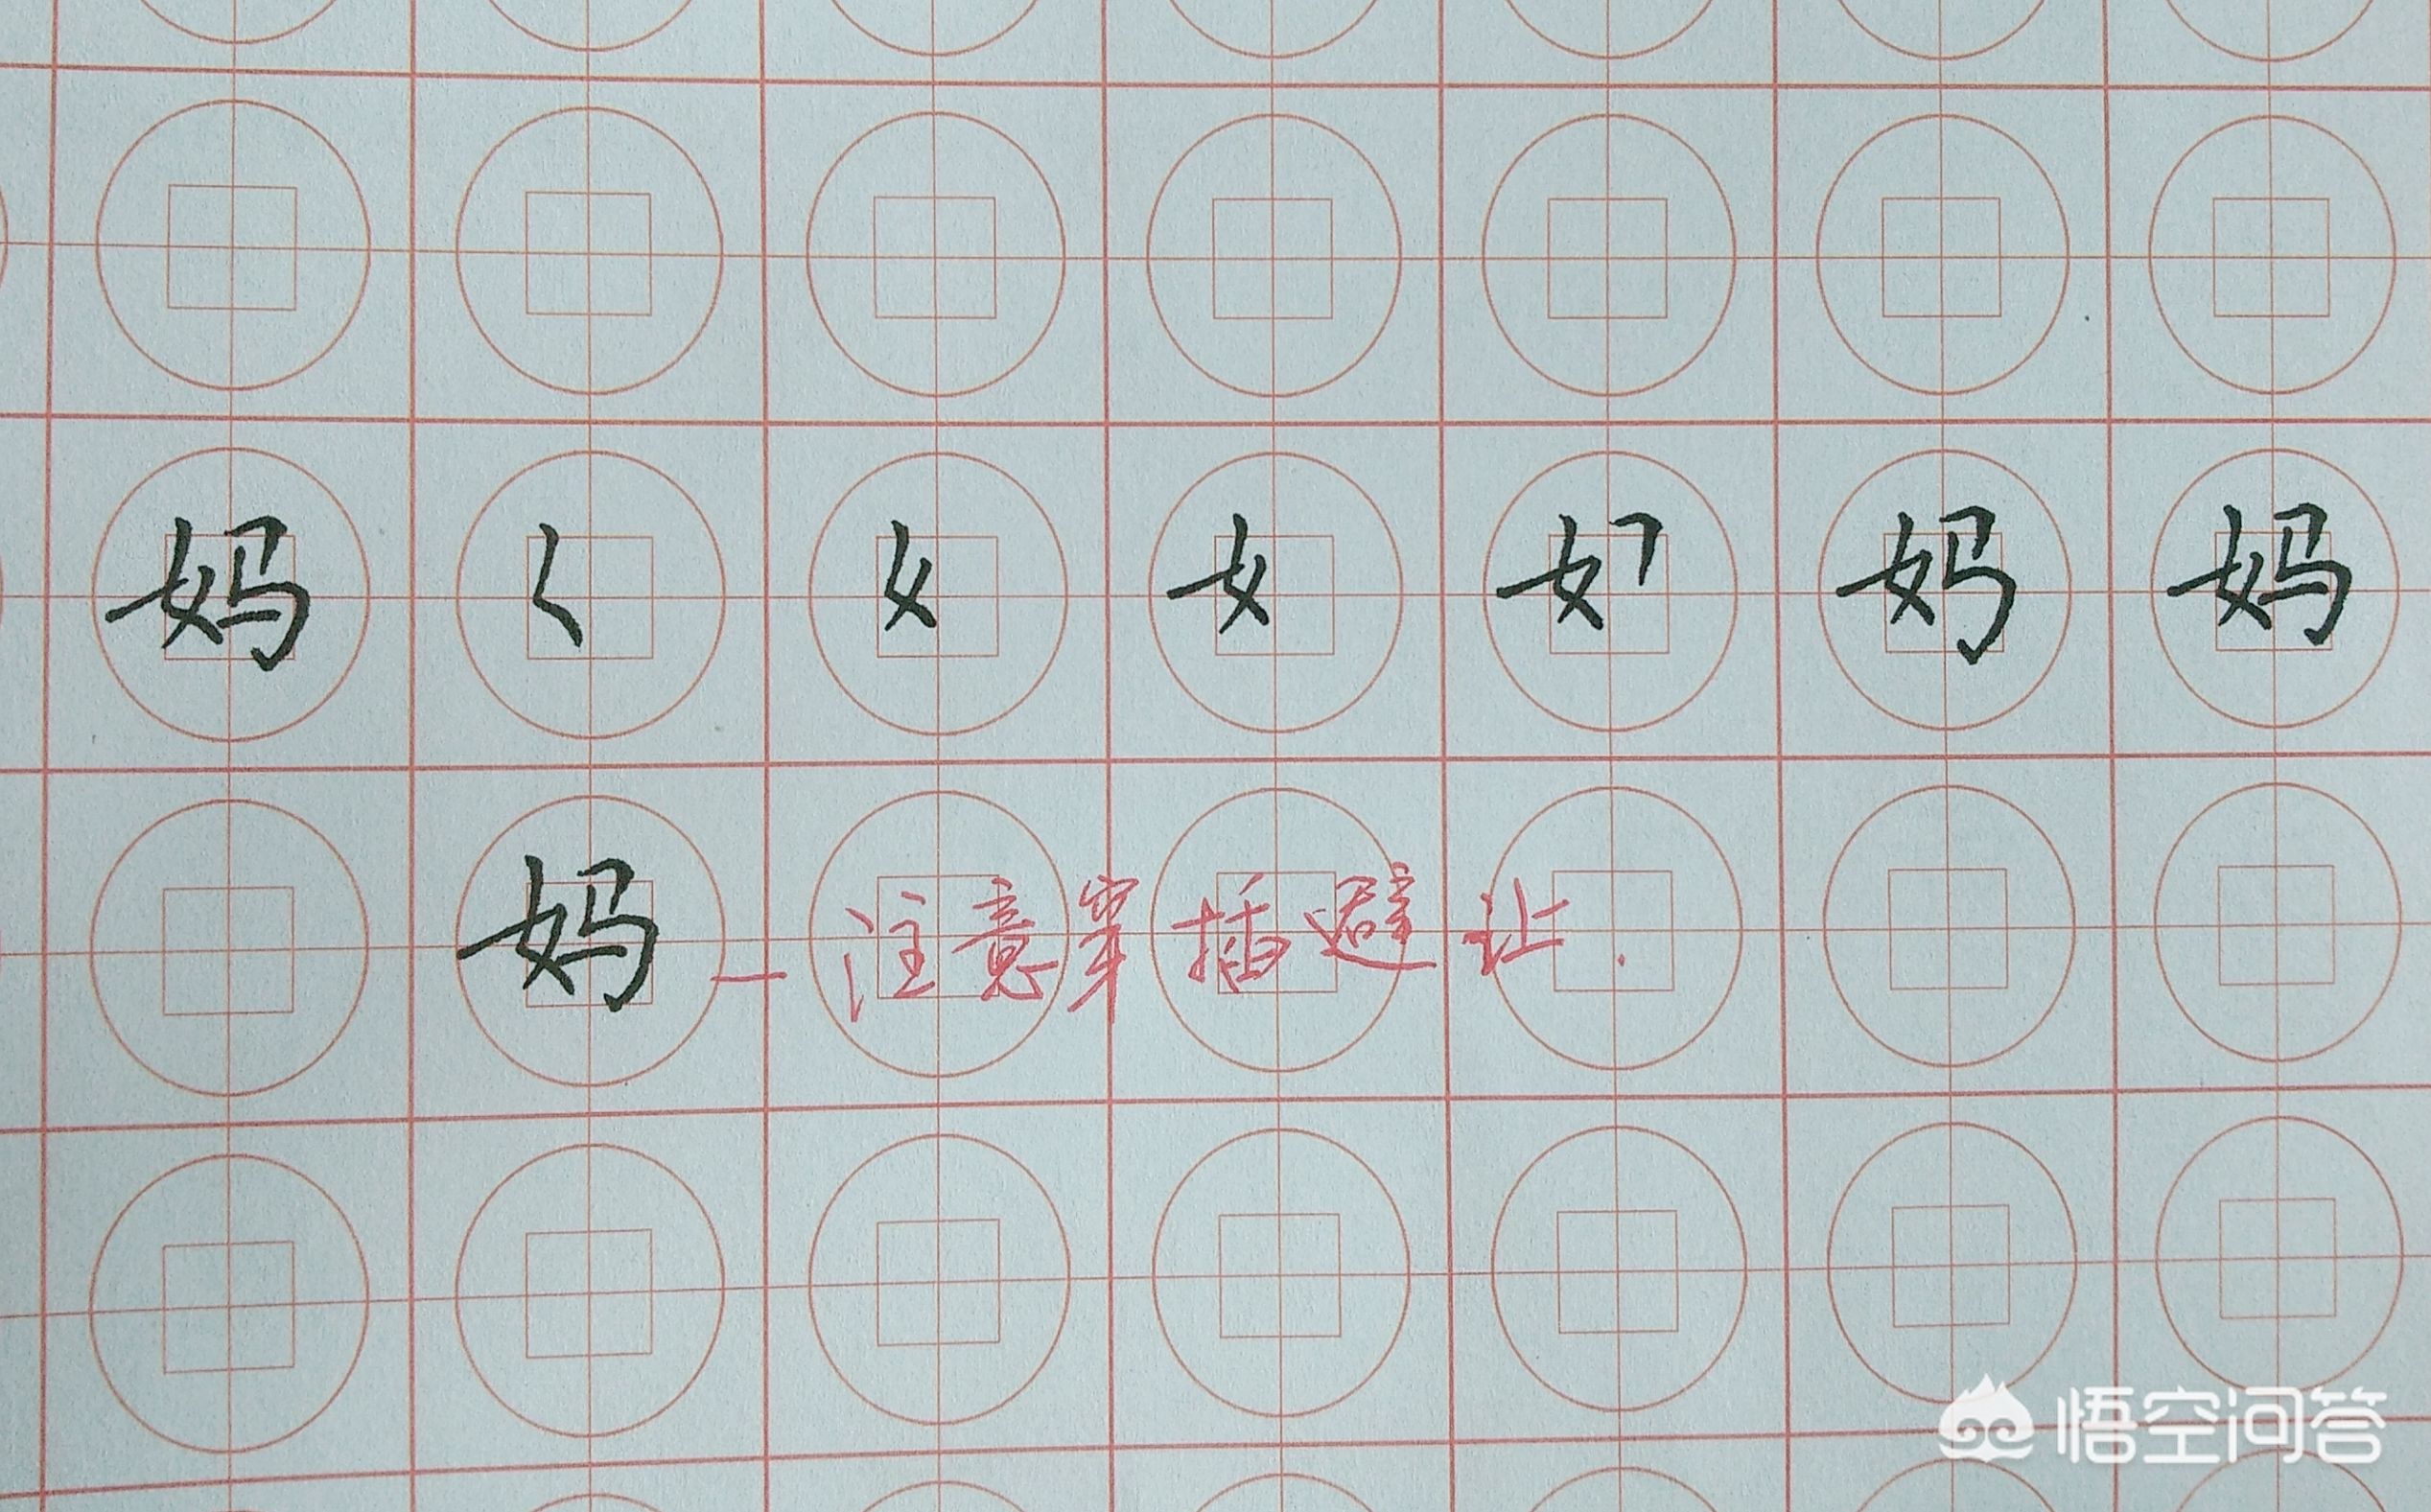 妈 𡿨 女 女 如 妈 妈
妈 — 注意穿插避让.
悟空问答